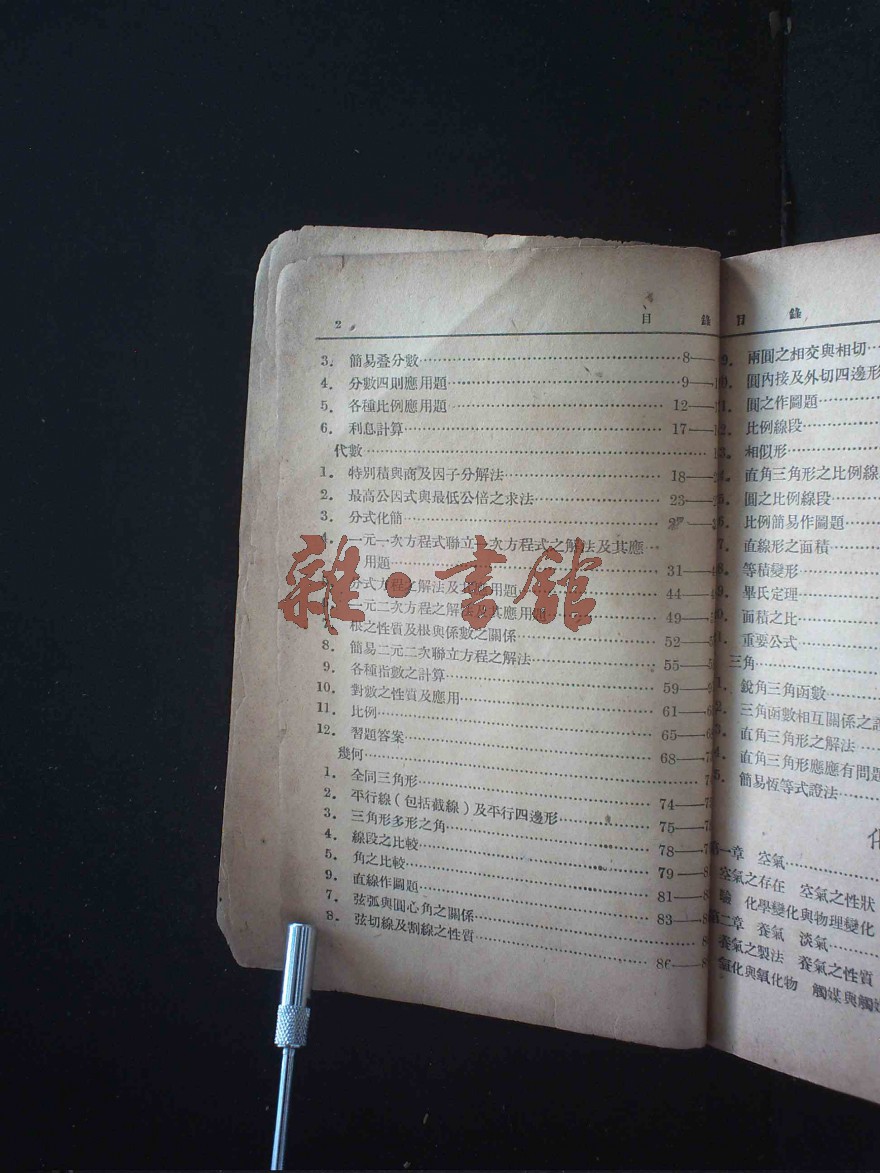 2 目錄
3. 簡易叠分數 8—
4. 分數四則應用題 9—
5. 各種比例應用題 12—
6. 利息計算 17—
代數
1. 特別積與商及因子分解法 18—
2. 最高公因式與最低公倍之求法 23—
3. 分式化簡 27—
4. 一元一次方程式聯立一次方程式之解法及其應
用題 31—
分式方程之解法及其應用題 44—
一元二次方程之解法及其應用題 49—
根之性質及根與係數之關係 52—
8. 簡易二元二次聯立方程之解法 55—
9. 各種指數之計算 59—
10. 對數之性質及應用 61—
11. 比例 65—
12. 習題答案 68—
幾何
1. 全同三角形
2. 平行線(包括截線)及平行四邊形 74—
3. 三角形多形之角 75—
4. 線段之比較 78—
5. 角之比較 79—
9. 直線作圖題 81—
7. 弦弧與圓心角之關係 83—
8. 弦切線及割線之性質
86—
雜·書館
目錄
9. 兩圓之相交與相切
圓內接及外切四邊形
圓之作圖題
比例線段
相似形
直角三角形之比例線
圓之比例線段
比例簡易作圖題
7. 直線形之面積
8. 等積變形
9. 畢氏定理
面積之比
重要公式
三角
1. 銳角三角函數
2. 三角函數相互關係之
直角三角形之解法
4. 直角三角形應應有問題
5. 簡易恆等式證法
第一章 空氣
空氣之存在 空氣之性狀
驗 化學變化與物理變化
第二章 養氣 淡氣
養氣之製法 養氣之性質
氧化與氧化物 觸媒與觸